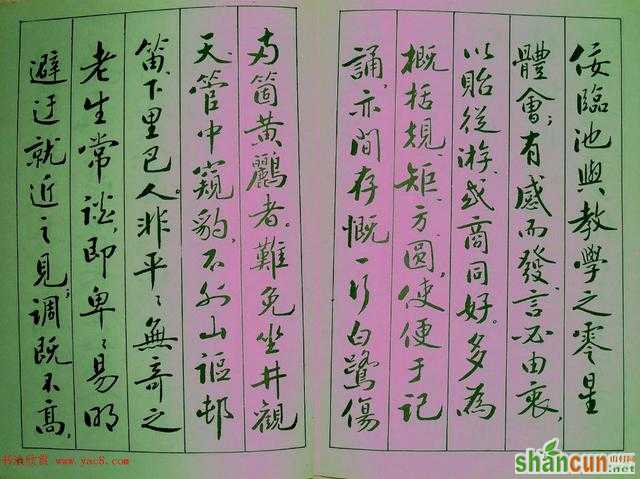 佞臨池與教學之零星
體會；有感而發，言必由衷，
以貽從游，或商同好。多為
概括規、矩、方、圓，使便于記
誦，亦間存慨一行白鷺傷
兩箇黃鸝者。難免坐井觀
天，管中窺豹，不外山謳邨
笛，下里巴人。非平平無奇之
老生常談，即卑卑易明
避迂就近之見；調既不高，
书法欣赏 www.yac8.com
shancun
山村网
.net